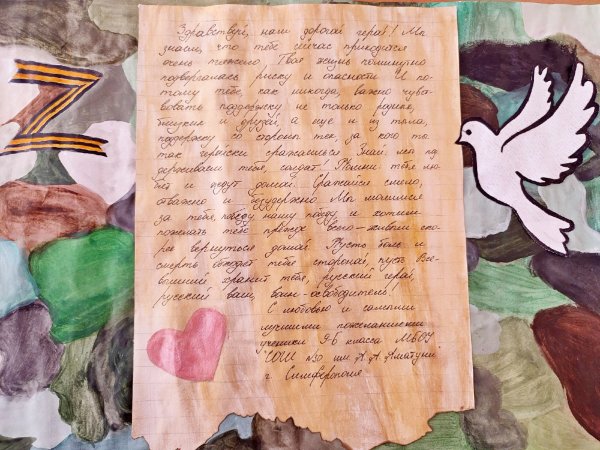 Здравствуй, наш дорогой герой! Мы
знаем, что тебе сейчас приходится
очень тяжело. Твоя жизнь поминутно
подвергалась риску и опасности. И по-
тому тебе, как никогда, важно чувс-
вовать поддержку не только родных,
близких и друзей, а еще и из тыла,
поддержку со стороны тех, за кого ты
так геройски сражаешься. Знай: мы под-
держиваем тебя, солдат! Помни: тебя лю-
бят и ждут дома. Сражайся смело,
отважно и безудержно. Мы молимся
за тебя, победу нашу победу и хотим
пожелать тебе прежде всего – живым ско-
рее вернуться домой. Пусть боль и
смерть обходят тебя стороной, пусть Все-
вышний хранит тебя, русский герой,
русский воин, воин-освободитель!
С любовью и самыми
лучшими пожеланиями
ученики 9-б класса МБОУ
СОШ №30 им А. А. Аматуни
г Симферополя.